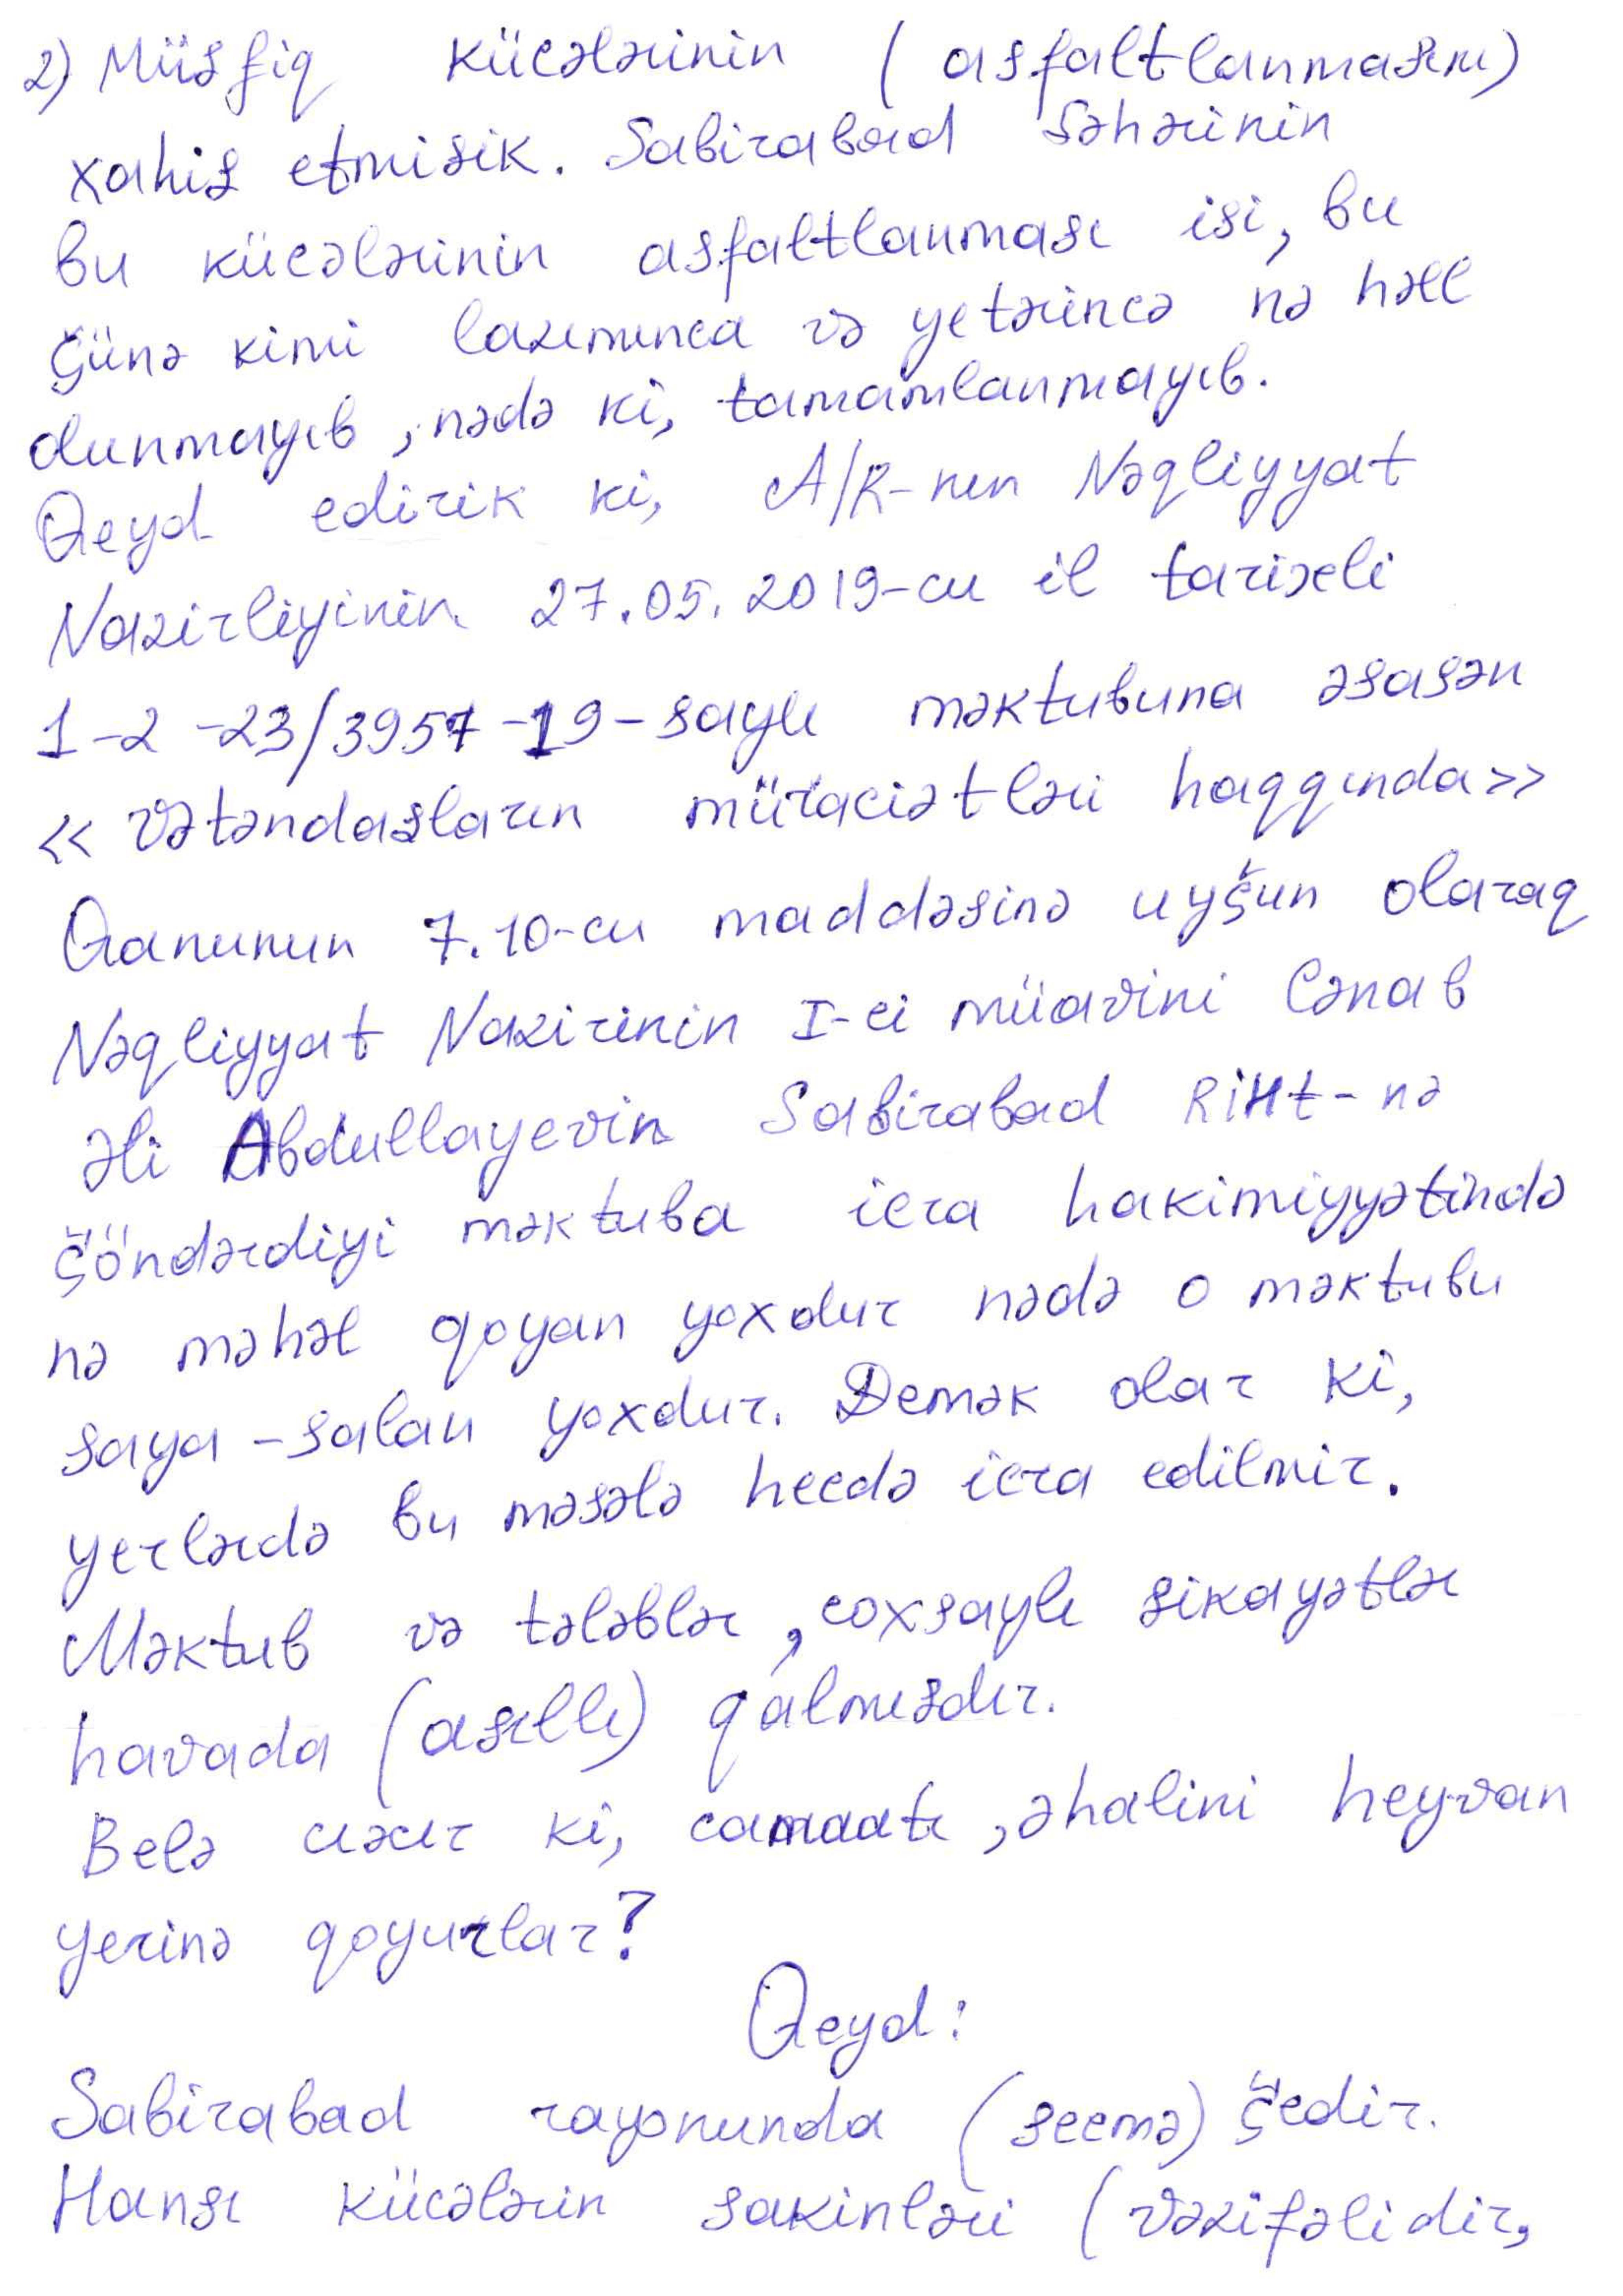 2) Müşfiq küçələrinin (asfaltlanmasını)
xahiş etmişik. Sabirabad şəhərinin
bu küçələrinin asfaltlanması işi, bu
günə kimi lazımınca və yetərincə nə həll
olunmayıb, nədə ki, tamamlanmayıb.
Qeyd edirik ki, A/R-nın Nəqliyyat
Nazirliyinin 27.05.2019-cu il tarixli
1-2-23/3957-19-saylı məktubuna əsasən
<< Vətəndaşların müraciətləri haqqında>>
Qanunun 7.10-cu maddəsinə uyğun olaraq
Nəqliyyat Nazirinin I-ci müavini Cənab
Əli Abdullayevin Sabirabad RİHt-nə
göndərdiyi məktuba icra hakimiyyətində
nə məhəl qoyan yoxdur nədə o məktubu
saya-salan yoxdur. Demək olar ki,
yerlərdə bu məsələ heçdə icra edilmir.
Məktub və tələblər, çoxsaylı şikayətlər
havada (asıllı) qalmışdır.
Belə çıxır ki, camaatı, əhalini heyvan
yerinə qoyurlar?
Qeyd:
Sabirabad rayonunda (seçmə) gedir.
Hansı küçələrin sakinləri (vəzifəlidir,